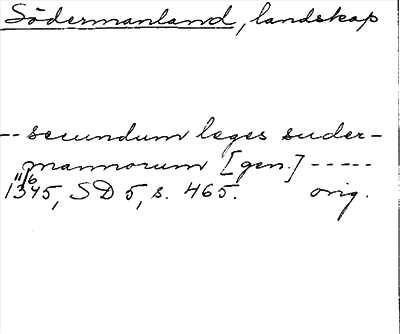 Södermanland, landskap
-- secundum leges suder-
mannorum [gen.] -----
11/6
1345, SD 5, s. 465. orig.